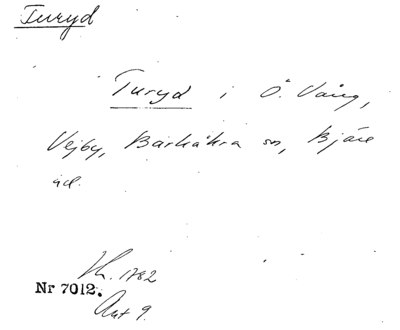 Turyd
Turyd i Ö. Vång,
Vejby, Barkåkra sn, Bjäre
hd.
Lh. 1782
Nr 7012.
Akt 9.